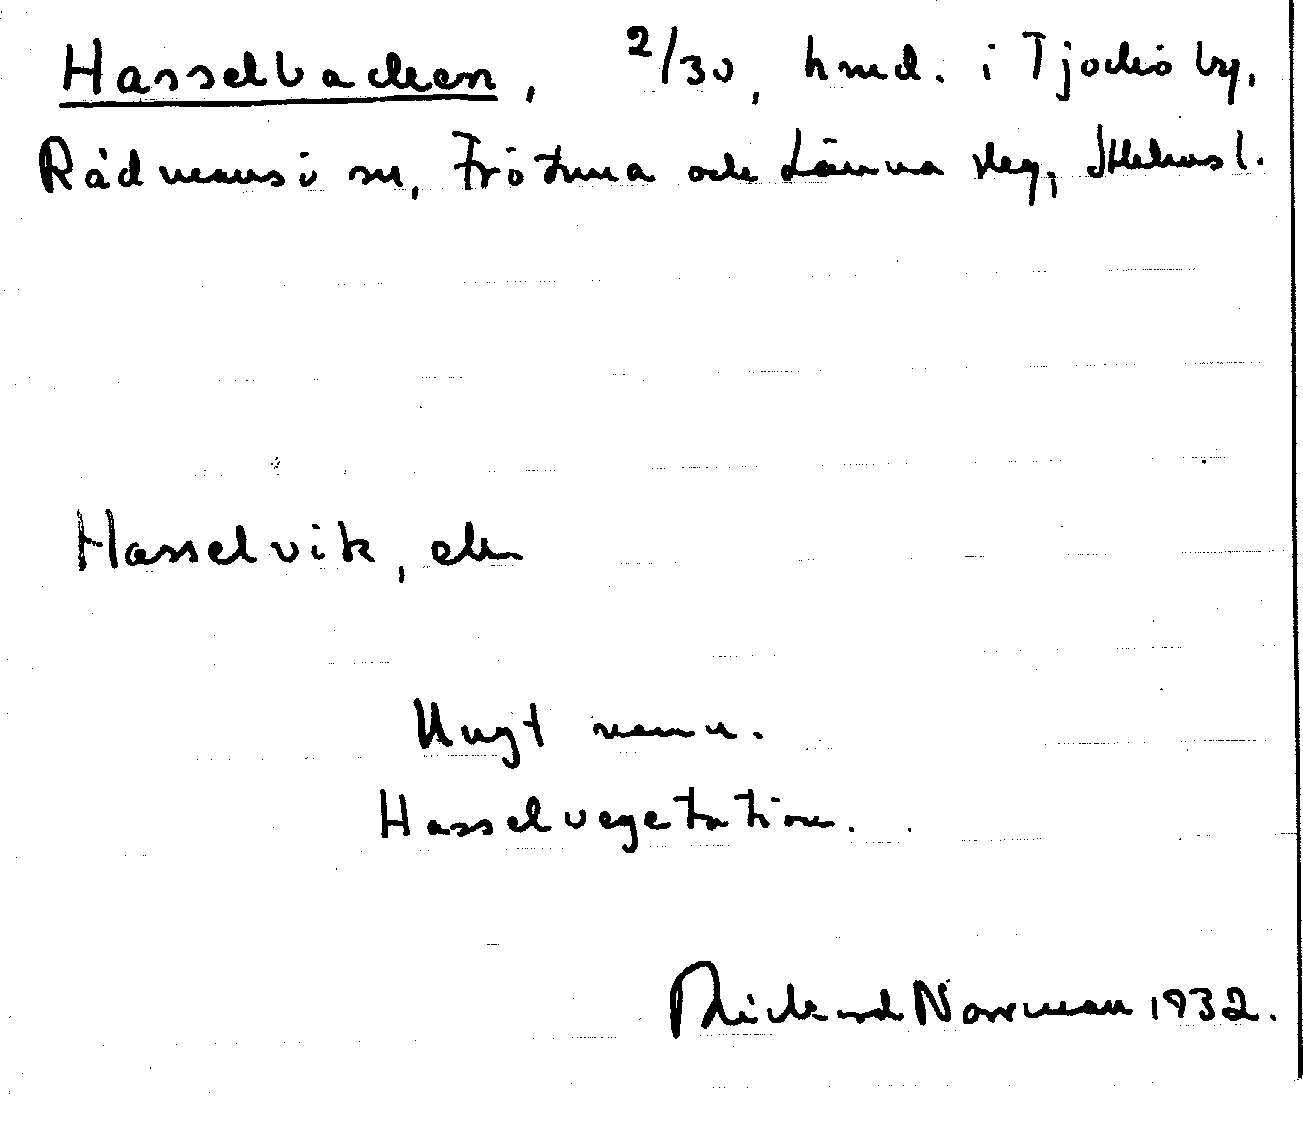 Hasselbacken, 2/30, hmd. i Tjockö by,
Rådmansö sn, Frötuna och Länna skg, Sthlms l.
Hasselvik, en
Ungt namn.
Hasselvegetation.
Rickard Norrman 1932.